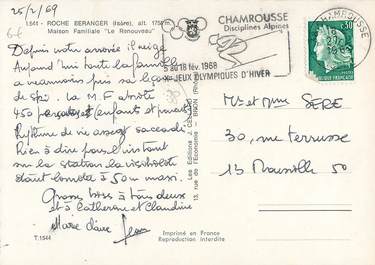 25/2/69
1544 - ROCHE BERANGER (Isère), alt. 1750 m.
Maison Familiale "Le Renouveau"
Depuis notre arrivée il neige
Aujourd'hui toute la famille
a néanmoins pris sa leçon
de ski. La M.F abrite
450 personnes (enfants et parents)
Rythme de vie assez saccadé
Rien à dire pour l'instant
sur la station la visibilité
étant tombée à 50m maxi.
Grosses bises à tous deux
et à Catherine et Claudine
Marie Claire Jean
T.1544
Les Editions J. CELLARD
BRON (Rh
Imprimé en France
Reproduction Interdite
CHAMROUSSE
Disciplines Alpines
5 au 18 fév. 1968
JEUX OLYMPIQUES D'HIVER
CHAMROUSSE
0,30
Mr et Mme SERE
30, rue Terrusse
13 Marseille 50